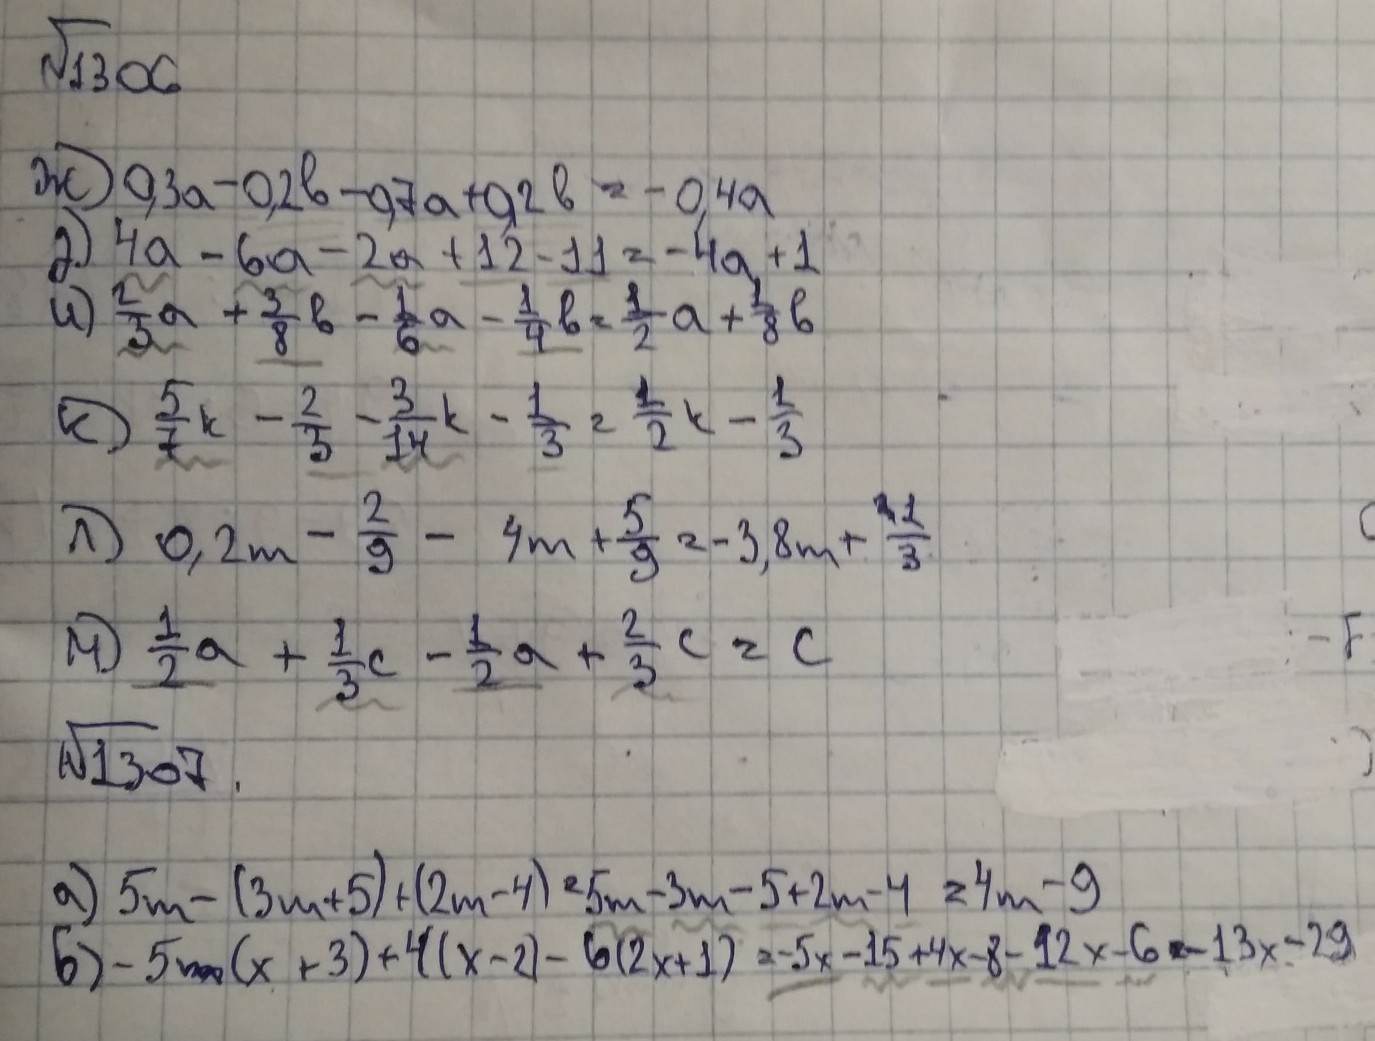 №1306
ж) 0,3a - 0,2b - 0,7a + 0,2b = -0,4a
з) 4a - 6a - 2a + 12 - 11 = -4a + 1
и) 2/3 a + 3/8 b - 1/6 a - 1/4 b = 1/2 a + 1/8 b
к) 5/7 k - 2/3 - 3/14 k - 1/3 = 1/2 k - 1/3
л) 0,2m - 2/9 - 4m + 5/9 = -3,8m + 1/3
м) 1/2 a + 1/3 c - 1/2 a + 2/3 c = c
№1307.
а) 5m - (3m+5) + (2m-4) = 5m - 3m - 5 + 2m - 4 = 4m - 9
б) - 5(x + 3) + 4(x - 2) - 6(2x+1) = -5x - 15 + 4x - 8 - 12x - 6 = -13x - 29